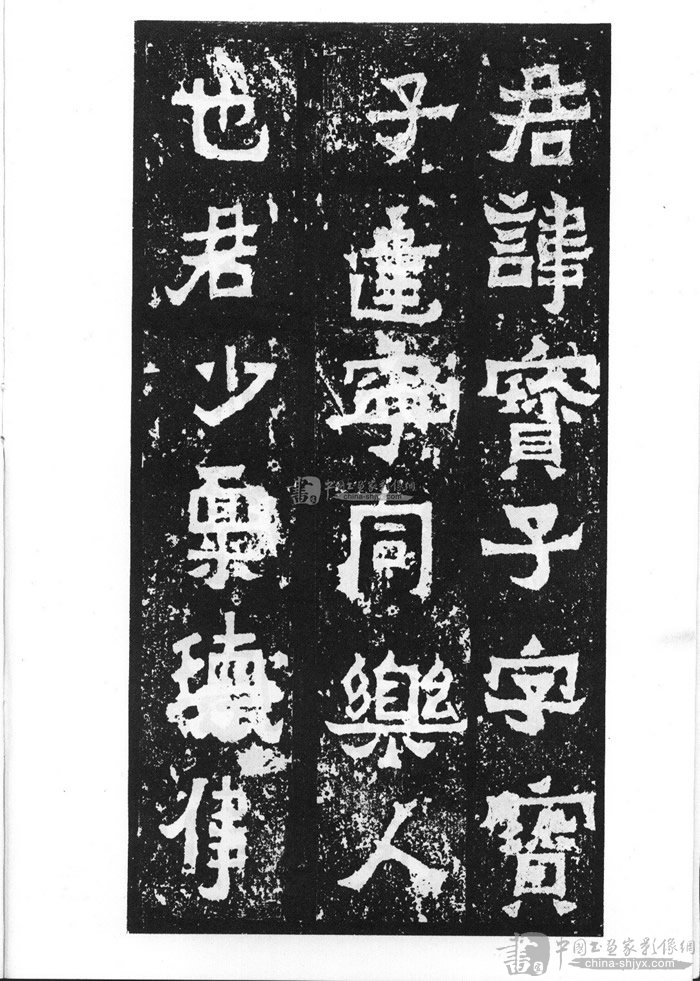 君諱寶子字寶
子建寧同樂人
也君少稟瓌偉
書 中国书画家影像網
china-shjyx.com
書 中国书画家影像網
china-shjyx.com